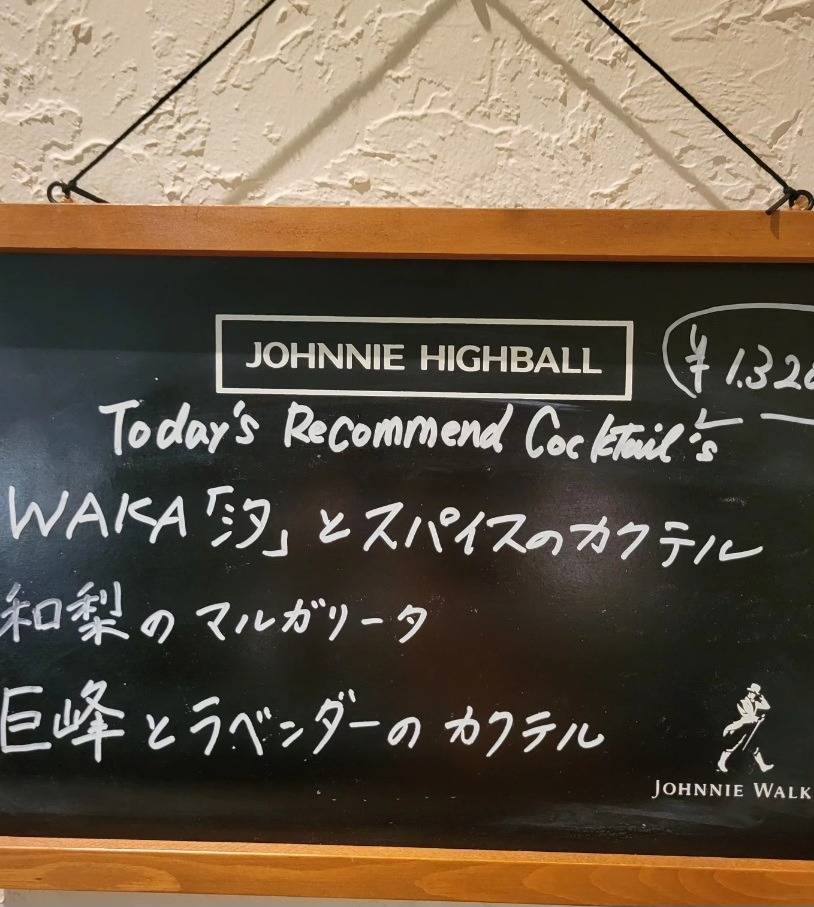 JOHNNIE HIGHBALL
¥1.320
Today's Recommend Cocktail's
WAKA「汐」とスパイスのカクテル
和梨のマルガリータ
巨峰とラベンダーのカクテル
JOHNNIE WALK